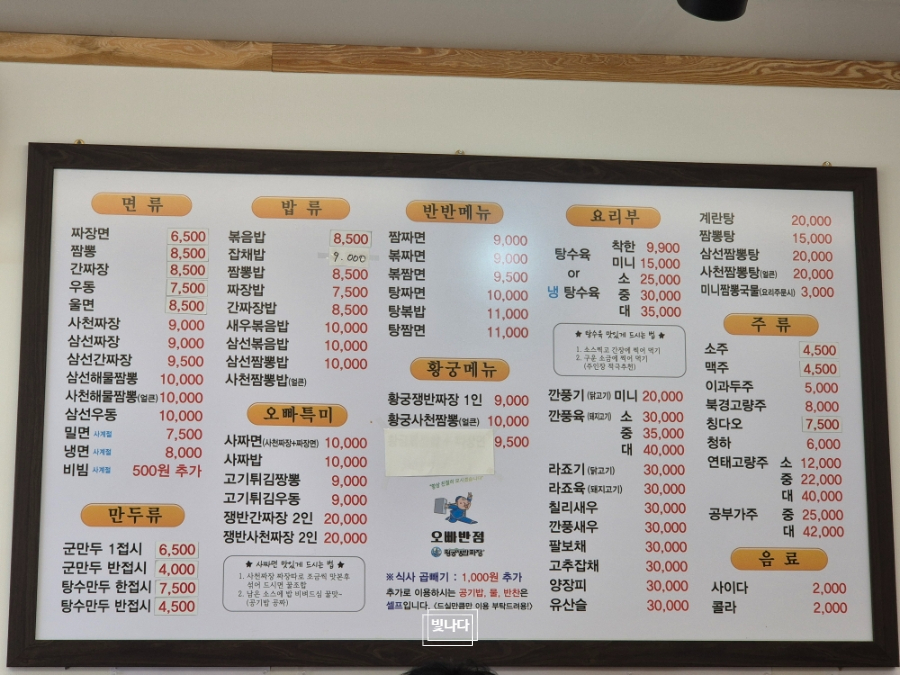 면 류
짜장면 6,500
짬뽕 8,500
간짜장 8,500
우동 7,500
울면 8,500
사천짜장 9,000
삼선짜장 9,000
삼선간짜장 9,500
삼선해물짬뽕 10,000
사천해물짬뽕(얼큰) 10,000
삼선우동 10,000
밀면 사계절 7,500
냉면 사계절 8,000
비빔 사계절 500원 추가
만두류
군만두 1접시 6,500
군만두 반접시 4,000
탕수만두 한접시 7,500
탕수만두 반접시 4,500
밥 류
볶음밥 8,500
잡채밥 9.000
짬뽕밥 8,500
짜장밥 7,500
간짜장밥 8,500
새우볶음밥 10,000
삼선볶음밥 10,000
삼선짬뽕밥 10,000
사천짬뽕밥(얼큰)
오빠특미
사짜면(사천짜장+짜장면) 10,000
사짜밥 10,000
고기튀김짬뽕 9,000
고기튀김우동 9,000
쟁반간짜장 2인 20,000
쟁반사천짜장 2인 20,000
★ 사짜면 맛있게 드시는 법 ★
1. 사천짜장 짜장따로 조금씩 맛본후
섞어 드시면 꿀조합
2. 남은 소스에 밥 비벼드심 꿀맛~
(공기밥 공짜)
반반메뉴
짬짜면 9,000
볶짜면 9,000
볶짬면 9,500
탕짜면 10,000
탕볶밥 11,000
탕짬면 11,000
황궁메뉴
황궁쟁반짜장 1인 9,000
황궁사천짬뽕(얼큰) 10,000
9,500
오빠반점
황궁쟁반짜장
※식사 곱빼기 : 1,000원 추가
추가로 이용하시는 공기밥, 물, 반찬은
셀프입니다. (드실만큼만 이용 부탁드려용!)
요리부
탕수육
or
냉 탕수육
착한 9,900
미니 15,000
소 25,000
중 30,000
대 35,000
★ 탕수육 맛있게 드시는 법 ★
1. 소스찍고 간장에 찍어 먹기
2. 구운 소금에 찍어 먹기
(주인장 적극추천)
깐풍기 (닭고기) 미니 20,000
깐풍육 (돼지고기) 소 30,000
중 35,000
대 40,000
라죠기 (닭고기) 30,000
라죠육 (돼지고기) 30,000
칠리새우 30,000
깐풍새우 30,000
팔보채 30,000
고추잡채 30,000
양장피 30,000
유산슬 30,000
계란탕 20,000
짬뽕탕 15,000
삼선짬뽕탕 20,000
사천짬뽕탕(얼큰) 20,000
미니짬뽕국물(요리주문시) 3,000
주 류
소주 4,500
맥주 4,500
이과두주 5,000
북경고량주 8,000
칭다오 7,500
청하 6,000
연태고량주 소 12,000
중 22,000
대 40,000
공부가주 중 25,000
대 42,000
음 료
사이다 2,000
콜라 2,000
빛나다